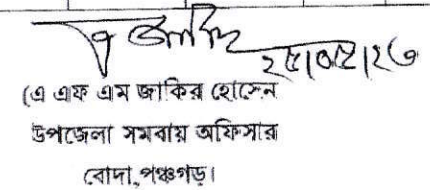 ২৫|০৫|২৩
(এ এফ এম জাকির হোসেন
উপজেলা সমবায় অফিসার
বোদা,পঞ্চগড়।